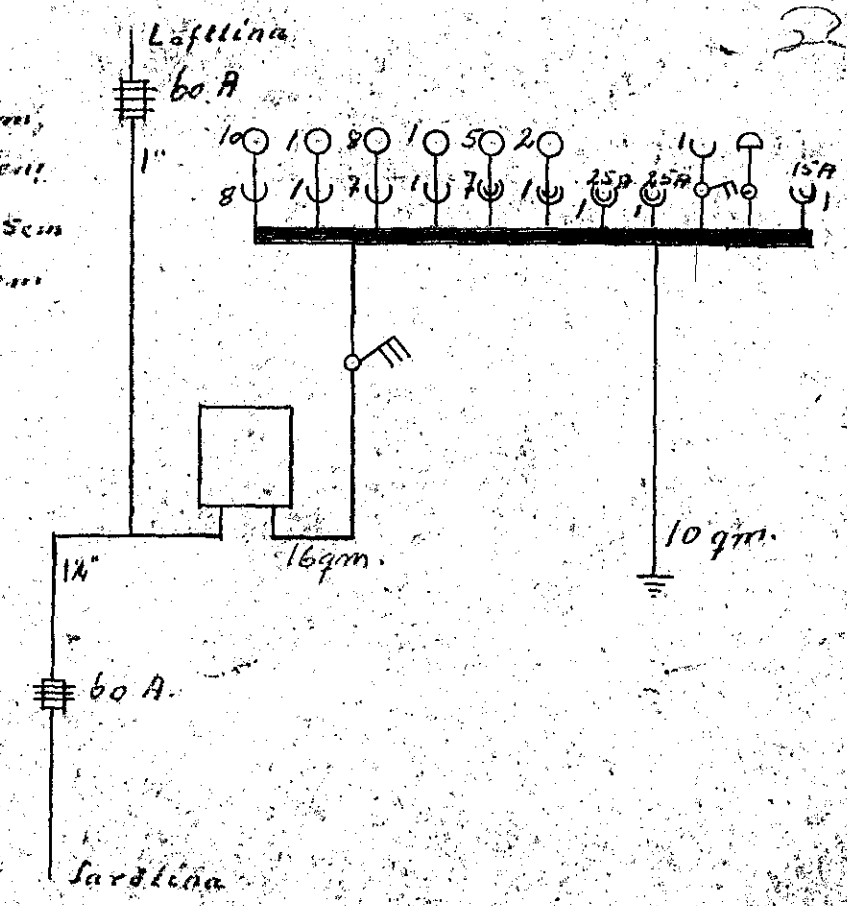 Loftlína
60 A
1"
10 1 8 1 5 2 1
8 1 7 1 7 1 25A 25A 15A
1 1 1
5cm
16qm.
10 qm.
1¼"
60 A.
Jarðlína